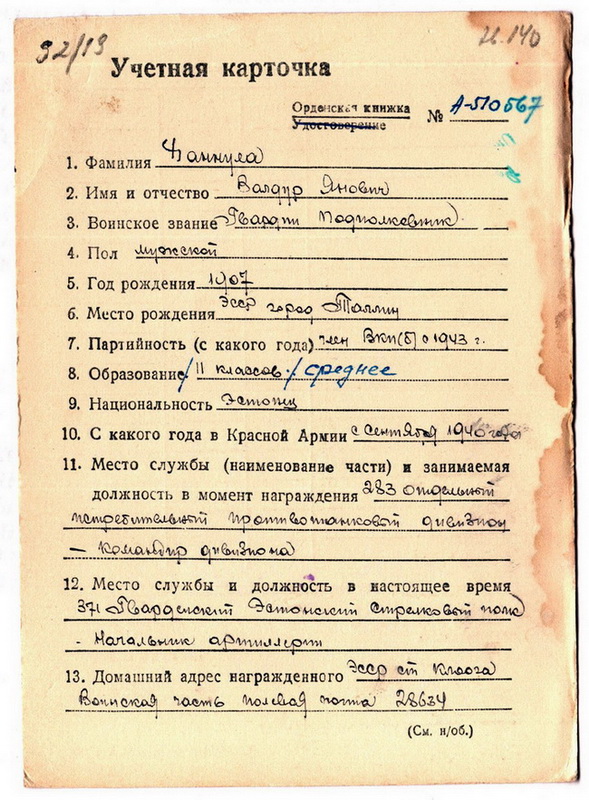 92/13
Н.140
Учетная карточка
Орденская книжка
Удостоверение № А-510567
1. Фамилия Ханнула
2. Имя и отчество Валдур Янович
3. Воинское звание Гвардии Подполковник
4. Пол мужской
5. Год рождения 1907
6. Место рождения ЭССР город Таллин
7. Партийность (с какого года) член ВКП(б) с 1943 г.
8. Образование / 11 классов / среднее
9. Национальность Эстонец
10. С какого года в Красной Армии с сентября 1940 года
11. Место службы (наименование части) и занимаемая
должность в момент награждения 283 отдельный
истребительный противотанковый дивизион
- командир дивизиона
12. Место службы и должность в настоящее время
371 Гвардейский Эстонский стрелковый полк
- Начальник артиллерии
13. Домашний адрес награжденного ЭССР ст Клоога
Воинская часть полевая почта 28634
(См. н/об.)